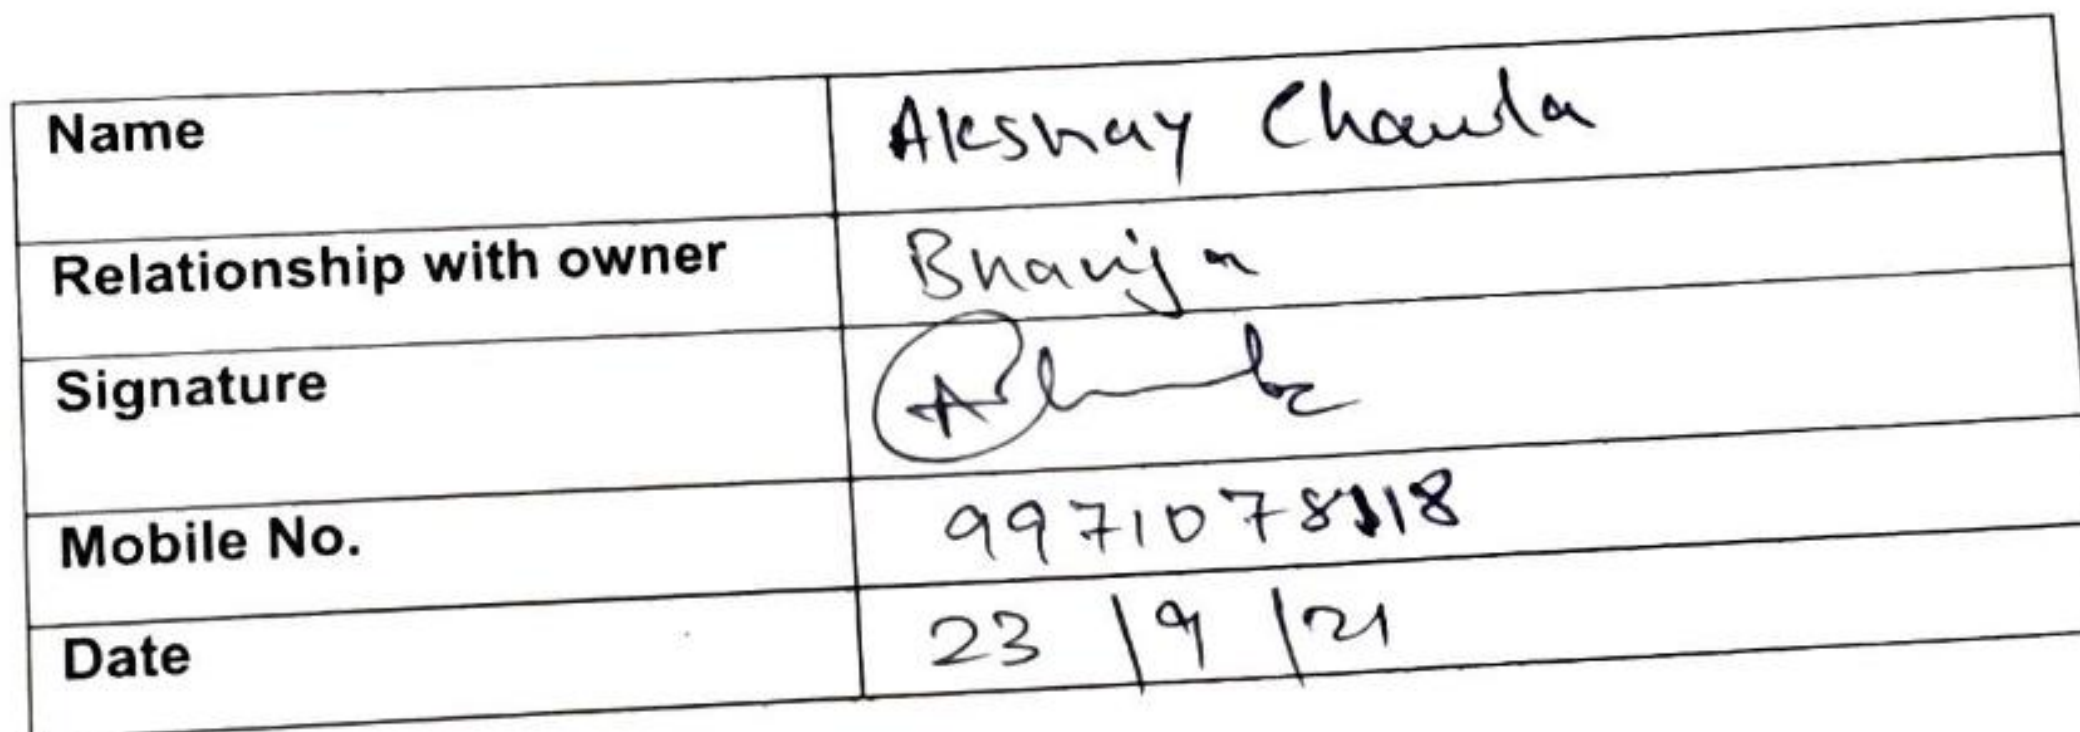 Name Akshay Chawla
Relationship with owner Bhanja
Signature
Mobile No. 9971078118
Date 23/9/21